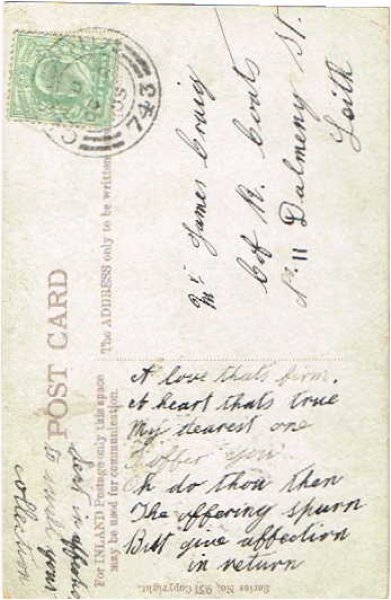 POST CARD
For INLAND Postage only this space
may be used for communication.
The ADDRESS only to be written
743
Mr James Craig
Cof R. Couts
No 11 Dalmeny St.
Leith
A love thats firm.
A heart thats true
My dearest one
I offer you
Oh do thou then
The offering spurn
But give affection
in return
Sort in
to your
collection
Series No, 931 Copyright.